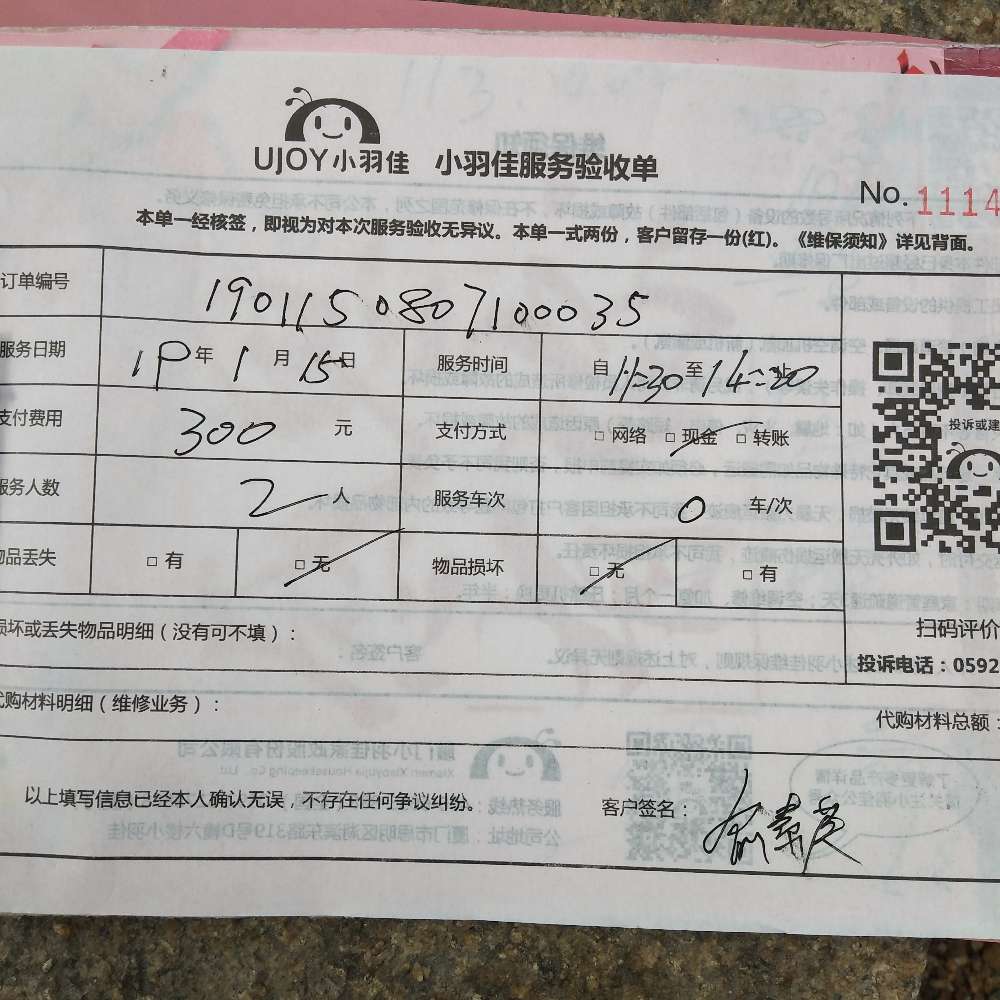 UJOY小羽佳 小羽佳服务验收单
No. 1114
本单一经核签，即视为对本次服务验收无异议。本单一式两份，客户留存一份(红)。《维保须知》详见背面。
订单编号 1901150807100035
服务日期 19年1月15日 服务时间 自11:30至14:30
支付费用 300 元 支付方式 □ 网络 □ 现金 □ 转账
投诉或建
服务人数 2 人 服务车次 0 车/次
物品丢失 □ 有 □ 无 物品损坏 □ 无 □ 有
损坏或丢失物品明细（没有可不填）：
扫码评价
投诉电话：0592
代购材料明细（维修业务）：
代购材料总额：
以上填写信息已经本人确认无误，不存在任何争议纠纷。 客户签名：